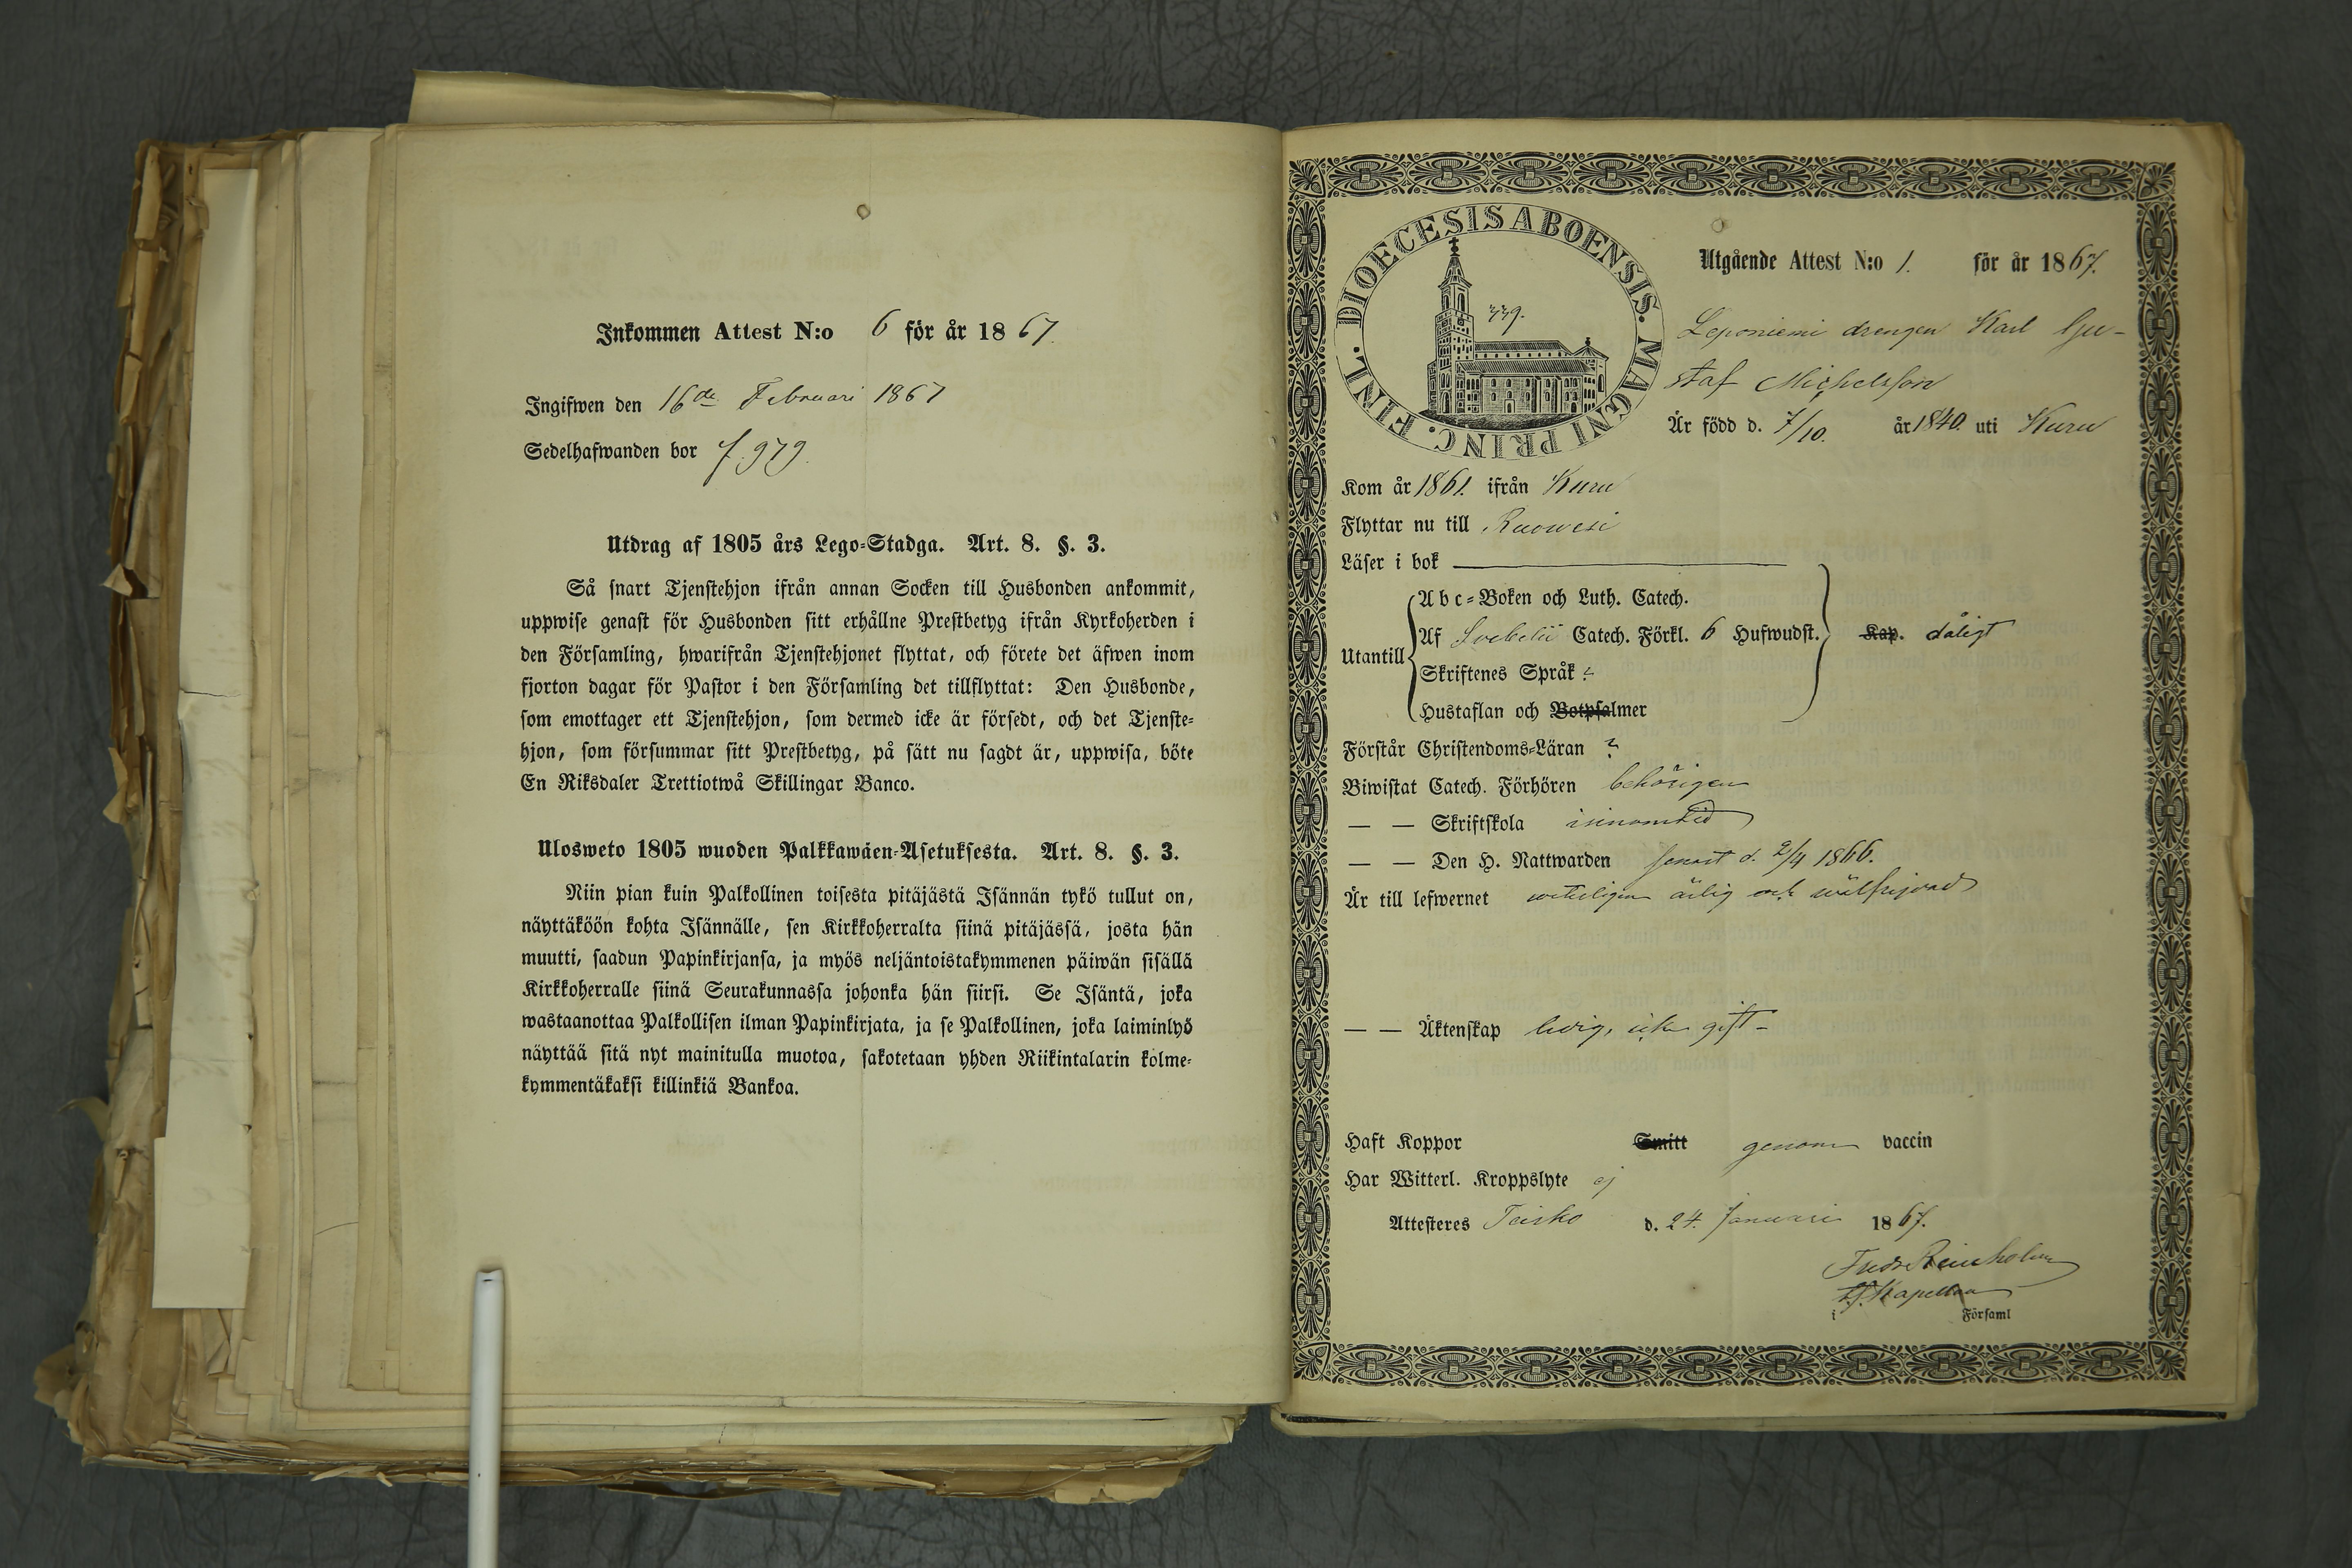 Inkommen Attest N:o 6 för år 1867.
Ingifwen den 16de Februari 1867
Sedelhafwanden bor f. 979.
Utdrag af 1805 års Lego-Stadga. Art. 8. §. 3.
Så snart Tjenstehjon ifrån annan Socken till Husbonden ankommit,
uppwise genast för Husbonden sitt erhållne Prestbetyg ifrån Kyrkoherden i
den Församling, hwarifrån Tjenstehjonet flyttat, och förete det äfwen inom
fjorton dagar för Pastor i den Församling det tillflyttat: Den Husbonde,
som emottager ett Tjenstehjon, som dermed icke är försedt, och det Tjenste-
hjon, som försummar sitt Prestbetyg, på sätt nu sagdt är, uppwisa, böte
En Riksdaler Trettiotwå Skillingar Banco.
Ulosweto 1805 wuoden Palkkawäen-Asetuksesta. Art. 8. §. 3.
Niin pian kuin Palkollinen toisesta pitäjästä Isännän tykö tullut on,
näyttäköön kohta Isännälle, sen Kirkkoherralta siinä pitäjässä, josta hän
muutti, saadun Papinkirjansa, ja myös neljäntoistakymmenen päiwän sisällä
Kirkkoherralle siinä Seurakunnassa johonka hän siirsi. Se Isäntä, joka
wastaanottaa Palkollisen ilman Papinkirjata, ja se Palkollinen, joka laiminlyö
näyttää sitä nyt mainitulla muotoa, sakotetaan yhden Riikintalarin kolme-
kymmentäkaksi killinkiä Bankoa.
DIOECESIS ABOENSIS. MAGNI PRINC. FINL.
339.
Utgående Attest N:o 1. för år 1867.
Leponiemi drengen Karl Gu-
staf Michelsson
Är född d. 7/10. år 1840. uti Kuru
Kom år 1861. ifrån Kuru
Flyttar nu till Ruowesi
Läser i bok
Utantill
Abc-Boken och Luth. Catech.
Af Svebelii Catech. Förkl. 6 Hufwudst. Kap. dåligt
Skriftenes Språk ÷
Hustaflan och Botpsalmer
Förstår Christendoms-Läran ?
Biwistat Catech. Förhören behörigen
— — Skriftskola i sinom tid
— — Den H. Nattwarden senast d. 2/4 1866.
Är till lefwernet witterligen ärlig och wälfrejdad
— — Äktenskap ledig, icke gift -
Haft Koppor Smitt genom vaccin
Har Witterl. Kroppslyte ej
Attesteres Teisko d. 24. Januari 1867.
Fredr Reinholm
Kapellan
i Församl